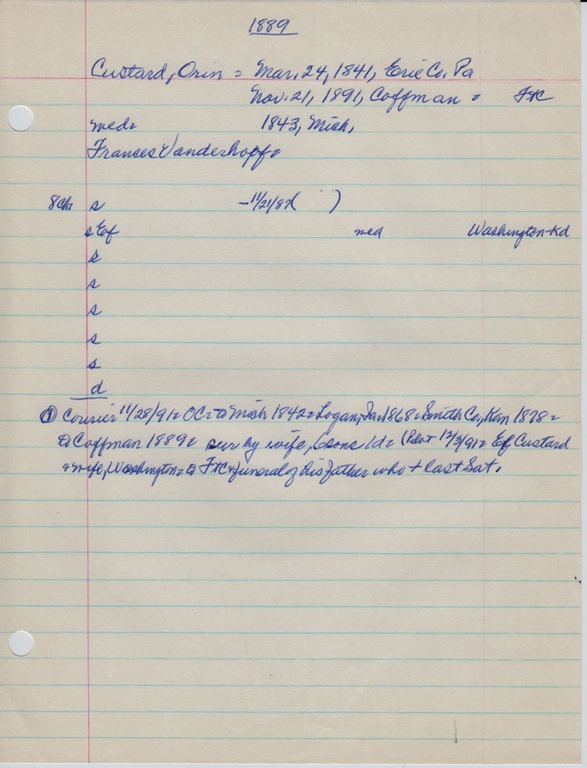 1889
Custard, Orin = Mar. 24, 1841, Erie Co. Pa
Nov. 21, 1891, Coffman = FHC
med = 1843, Mich.
Frances Vanderhoff =
8 Ch s - 11/21/8 ( )
s Eof med Washington - Kd
s
s
s
s
s
d
① Courier 11/28/91 = OC = to Mich 1842 = Logan, Ia. 1868 = Smith Co, Kan 1878 =
Coffman 1889 = sur by wife, 6 sons 1d = (Pilot 12/3/91 = Eof Custard
+ wife, Washington = FHC + funeral of his father who + last Sat.